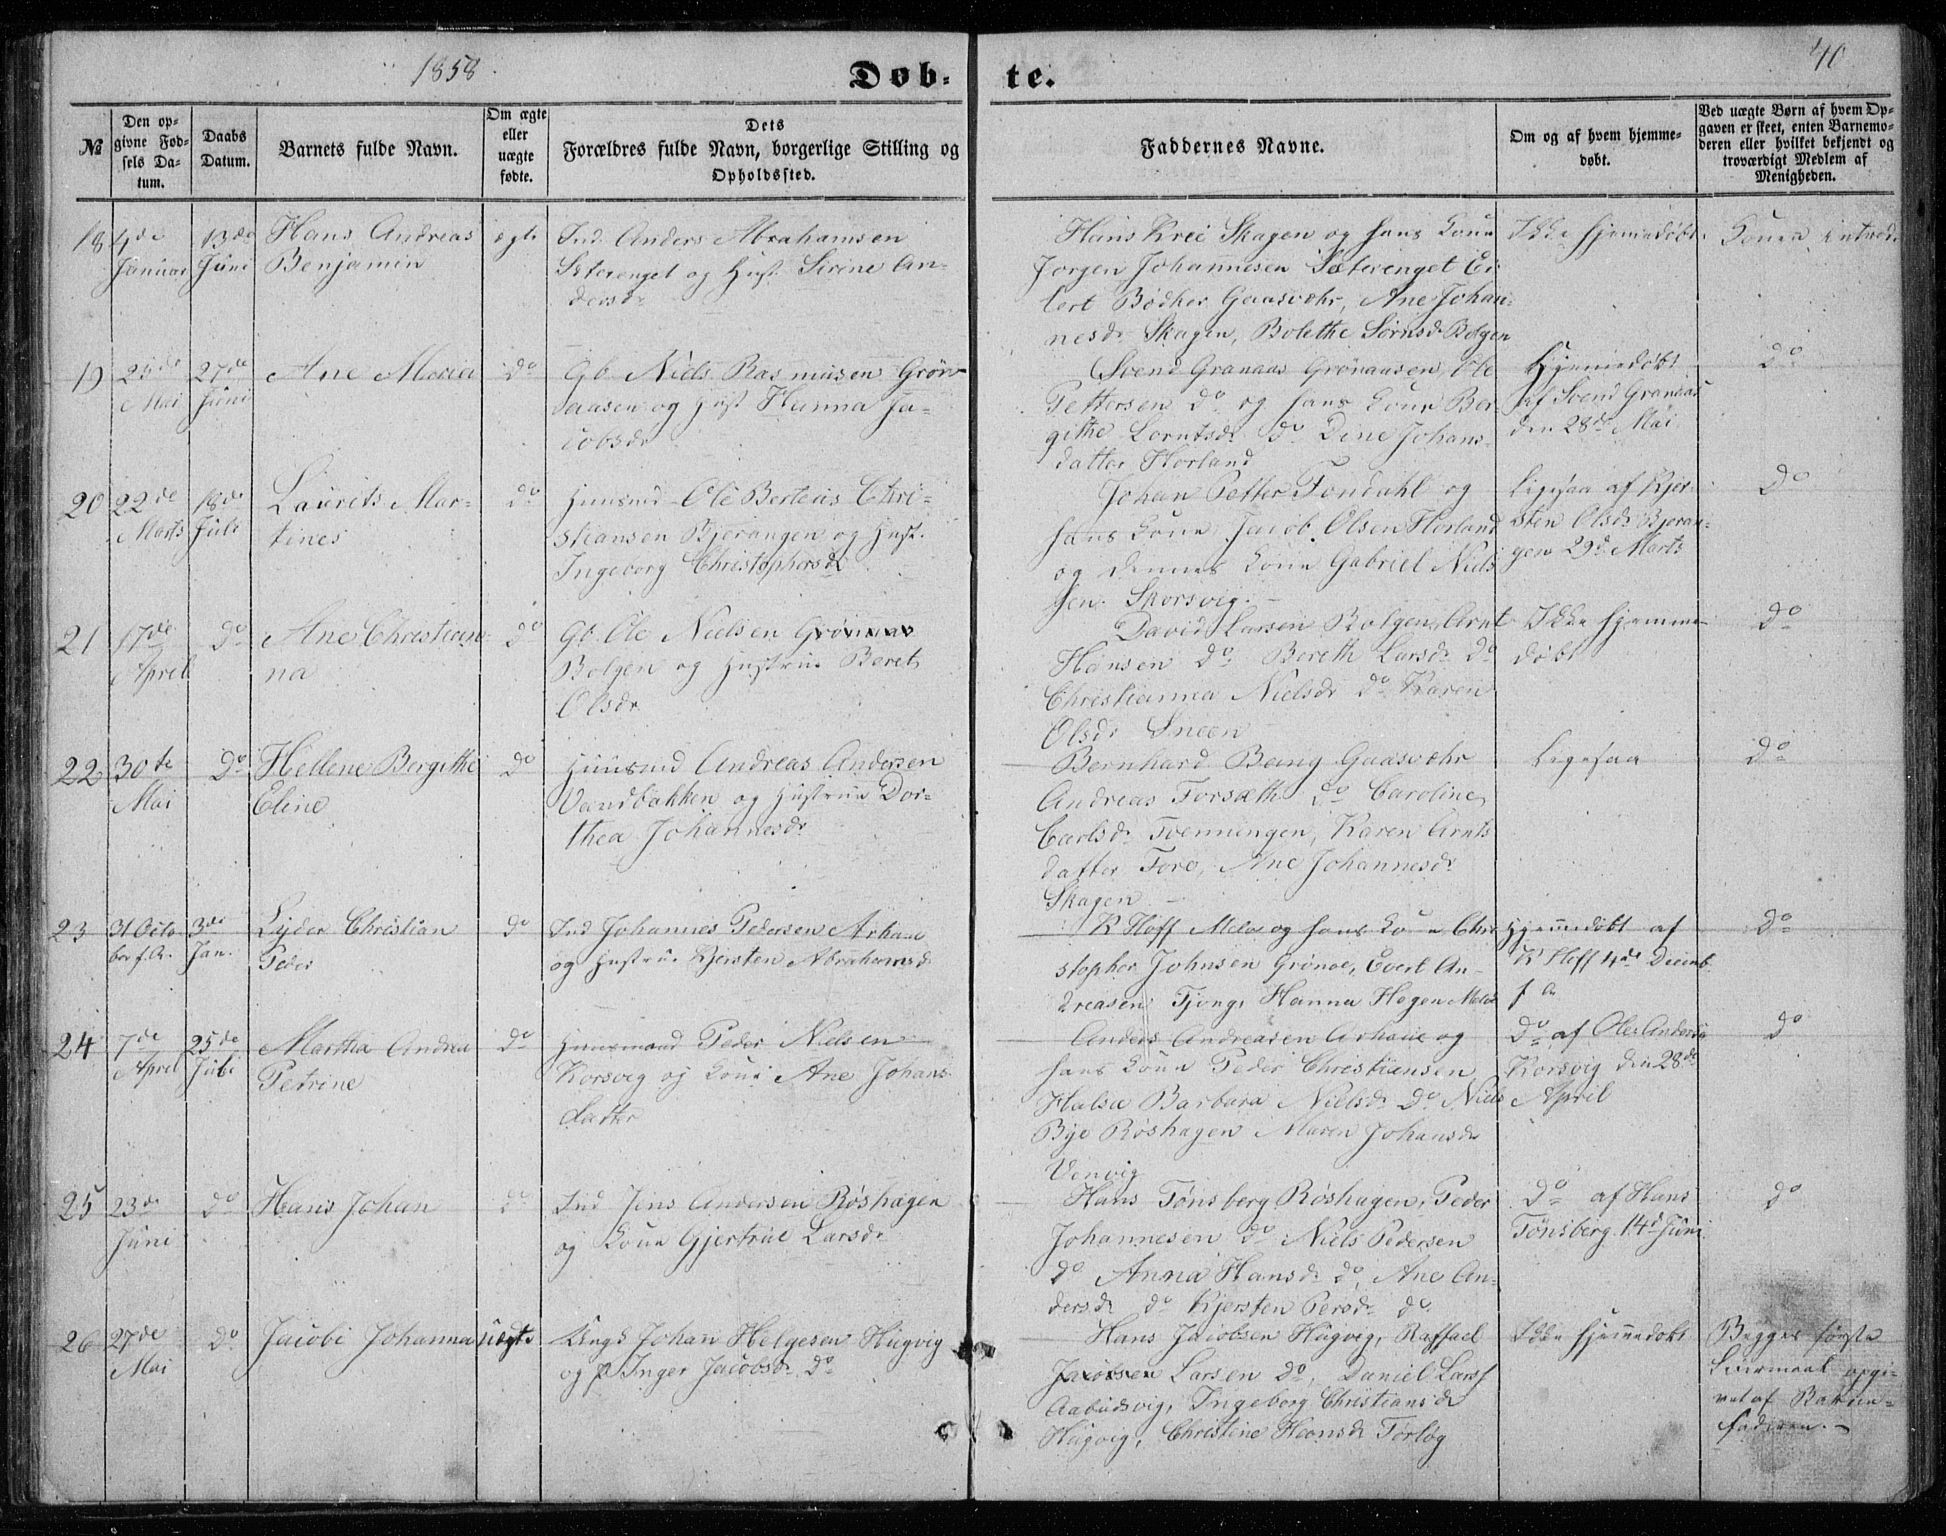 1858.
Døb-
te.
40
№
Den op-
givne Fød-
sels Da-
tum.
Daabs
Datum.
Barnets fulde Navn.
Om ægte
eller
uægte
fødte.
Dets
Forældres fulde Navn, borgerlige Stilling og
Opholdssted.
Faddernes Navne.
Om og af hvem hjemme-
døbt.
Ved uægte Børn af hvem Op-
gaven er skeet, enten Barnemo-
deren eller hvilket bekjendt og
troværdigt Medlem af
Menigheden.
18
4de
Januar
13de
Juni
Hans Andreas
Benjamin
ægte
Ind. Anders Abrahamsen
Sæterenget og Hust. Sirine An-
dersdr
Hans Krei Skagen og hans Kone
Jørgen Johannesen Sæterenget Ei-
lert Bødker Gaasvær, Ane Johan-
nesdr Skagen, Bolethe Sørnsdr Bolgen
Ikke hjemmedøbt.
Konen introd.
19
Mai
27de
Juni
Ane Maria
do
Gb. Niels Rasmusen Grøn-
aasen og Hust Hanna Ja-
cobsdr
Svend Granaas Grønaasen, Ole
Pettersen do og hans Kone Ber-
githe Lorntsdr do Dine Johans-
datter Horland
Hjemmedøbt
af Svend Granaas
den 28de Mai
do
20
22de
Marts
18de
Juli
Laurits Mar-
tines
do
Huusmd Ole Berteus Chri-
stiansen Bjerangen og Hust.
Ingeborg Christophersdr
Johan Petter Fondahl og
hans Kone, Jacob Olsen Horland
og dennes Kone Gabriel Niel-
sen Skorsvig.
Ligesaa af Kjer-
sten Olsdr Bjeran-
gen 29de Marts
do
21
17de
April
do
Ane Christian-
na
do
Gb. Ole Nielsen Grønnaas
Bolgen og Hustrue Beret
Olsdr
David Larsen Bolgen, Arnt
Hansen do Bereth Larsdr do
Christianna Nielsdr do Karen
Olsdr Sneen
Ikke hjemme-
døbt
do
22
30te
Mai
do
Hellene Bergithe
Eline
do
Huusmd Andreas Andersen
Vandbakken og Hustrue Dor-
thea Johannesdr
Bernhard Bang Gaasvær
Andreas Forsæth do Caroline
Carlsdr Tvenningen, Karen Arnts
datter Forø, Ane Johannesdr
Skagen
Ligesaa
do
23
31 Octo
ber f.A.
3de
Jan.
Lyder Christian
Peder
do
Ind Johannes Pedersen Arhaue
og Hustrue Kjersten Abrahamsdr
K Hoff Melø og hans Kone Chri
stopher Johnsen Grønøe, Evert An-
dreasen Tjong, Hanna Hagen Melø
Hjemmedøbt af
K Hoff 4de Decemb.
f A
do
24
7de
April
25de
Juli
Martha Andrea
Petrine
do
Huusmand Peder Nielsen
Korsvig og Kone Ane Johans-
datter
Anders Andreasen Arhaue og
hans Kone Peder Christiansen
Halsa Barbara Nielsdr do Niels
Bye Røshagen Maren Johansdr
Venvig
do af Ole Andersen
Korsvig den 28de
April
do
25
23de
Juni
do
Hans Johan
do
Ind Jens Andersen Røshagen
og Kone Gjertrue Larsdr
Hans Tønsberg Røshagen, Peder
Johannesen do Niels Pedersen
do Anna Hansdr do, Ane An-
dersdr do Kjersten Persdr do
do af Hans
Tønsberg 14de Juni
do
26
27de
Mai
do
Jacobe Johanna
uægte
Ungk Johan Helgesen Hugvig
og p Inger Jacobsdr do
Hans Jacobsen Hugvig, Raffael
Jacobsen Larsen do, Daniel Lars.
Aabudsvig, Ingeborg Christiansdr
Hugvig, Christine Hansdr Forlog
Ikke hjemmedøbt
Begges første
Leiermaal opgi-
vet af Barne-
faderen.